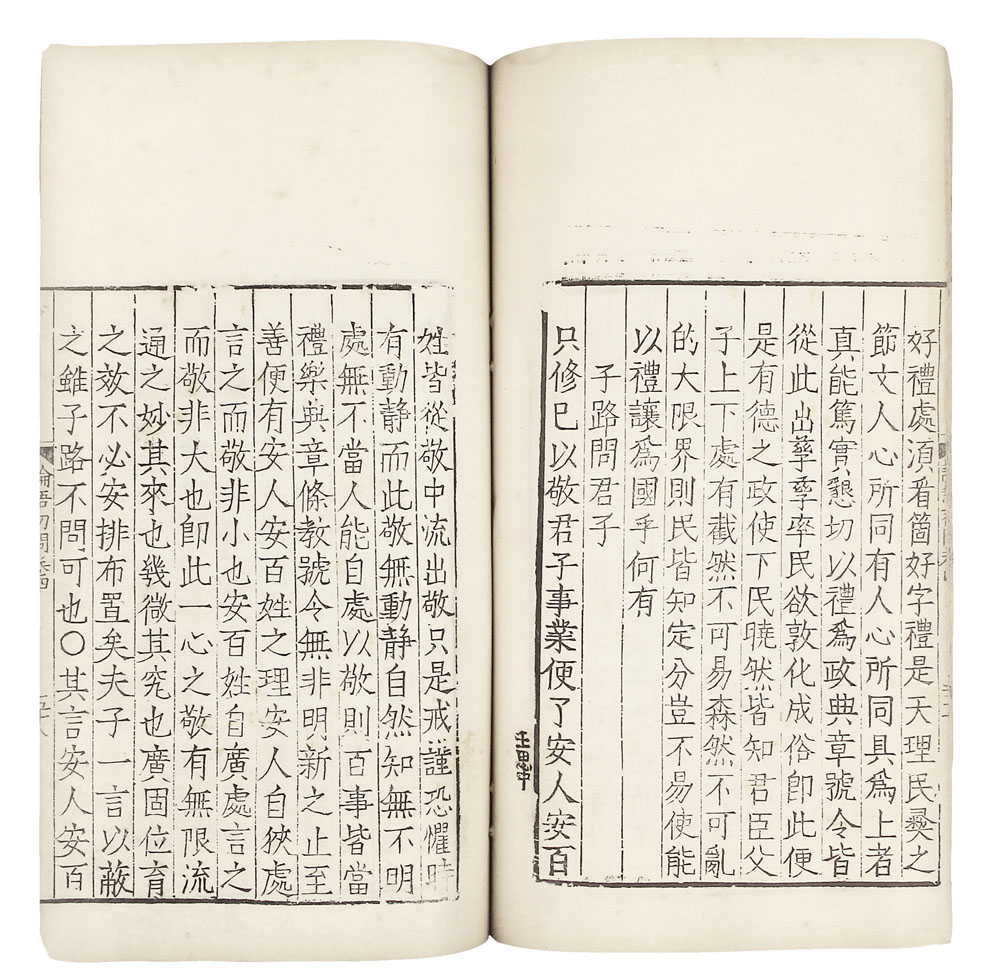 好禮處須看箇好字禮是天理民彝之
節文人心所同有人心所同具爲上者
真能篤實懇切以禮爲政典章號令皆
從此出孳孳率民欲敦化成俗卽此便
是有德之政使下民曉然皆知君臣父
子上下處有截然不可易森然不可亂
的大限界則民皆知定分豈不易使能
以禮讓爲國乎何有
子路問君子
只修已以敬君子事業便了安人安百
姓皆從敬中流出敬只是戒謹恐懼時
有動靜而此敬無動靜自然知無不明
處無不當人能自處以敬則百事皆當
禮樂典章條教號令無非明新之止至
善便有安人安百姓之理安人自狹處
言之而敬非小也安百姓自廣處言之
而敬非大也卽此一心之敬有無限流
通之妙其來也幾微其究也廣固位育
之效不必安排布置矣夫子一言以蔽
之雖子路不問可也〇其言安人安百
論語切問卷四